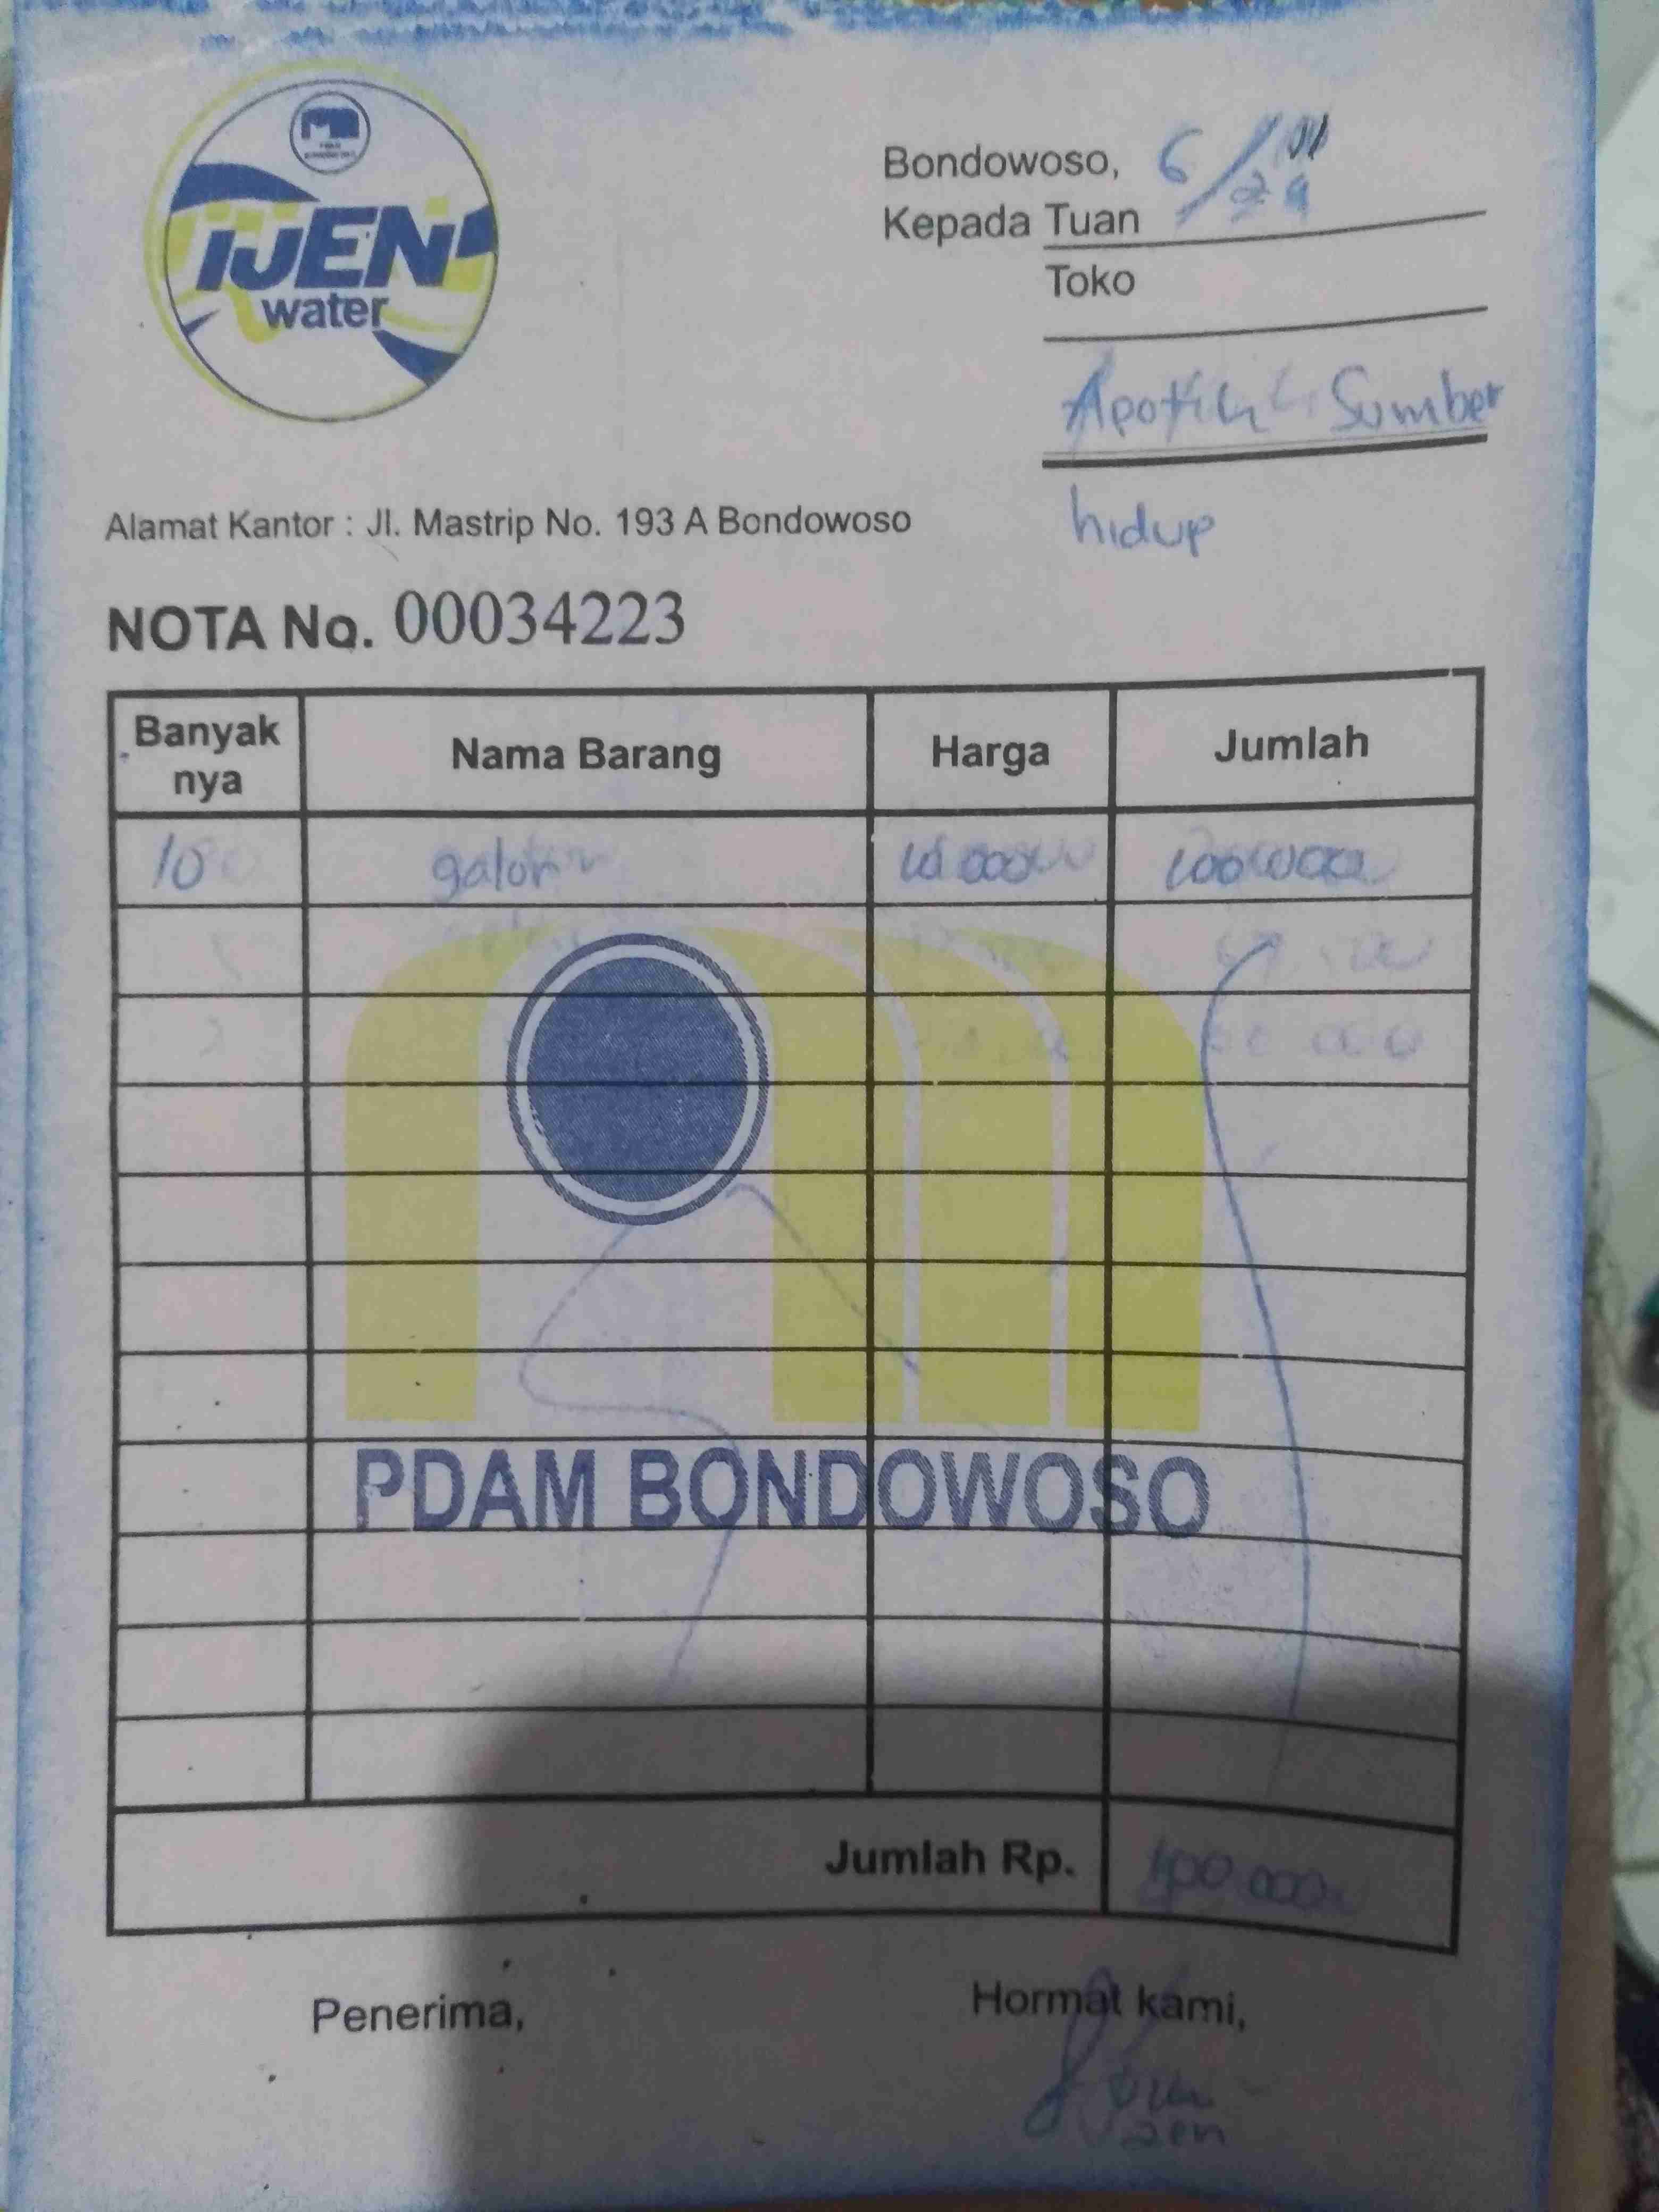 IJEN
water
Bondowoso, 6/
Kepada Tuan
Toko
Apotik Sumber
hidup
Alamat Kantor : Jl. Mastrip No. 193 A Bondowoso
NOTA No. 00034223
Banyak nya Nama Barang Harga Jumlah
10 galon 10.000 100.000
PDAM BONDOWOSO
Jumlah Rp. 100.000
Penerima, Hormat kami,
zen